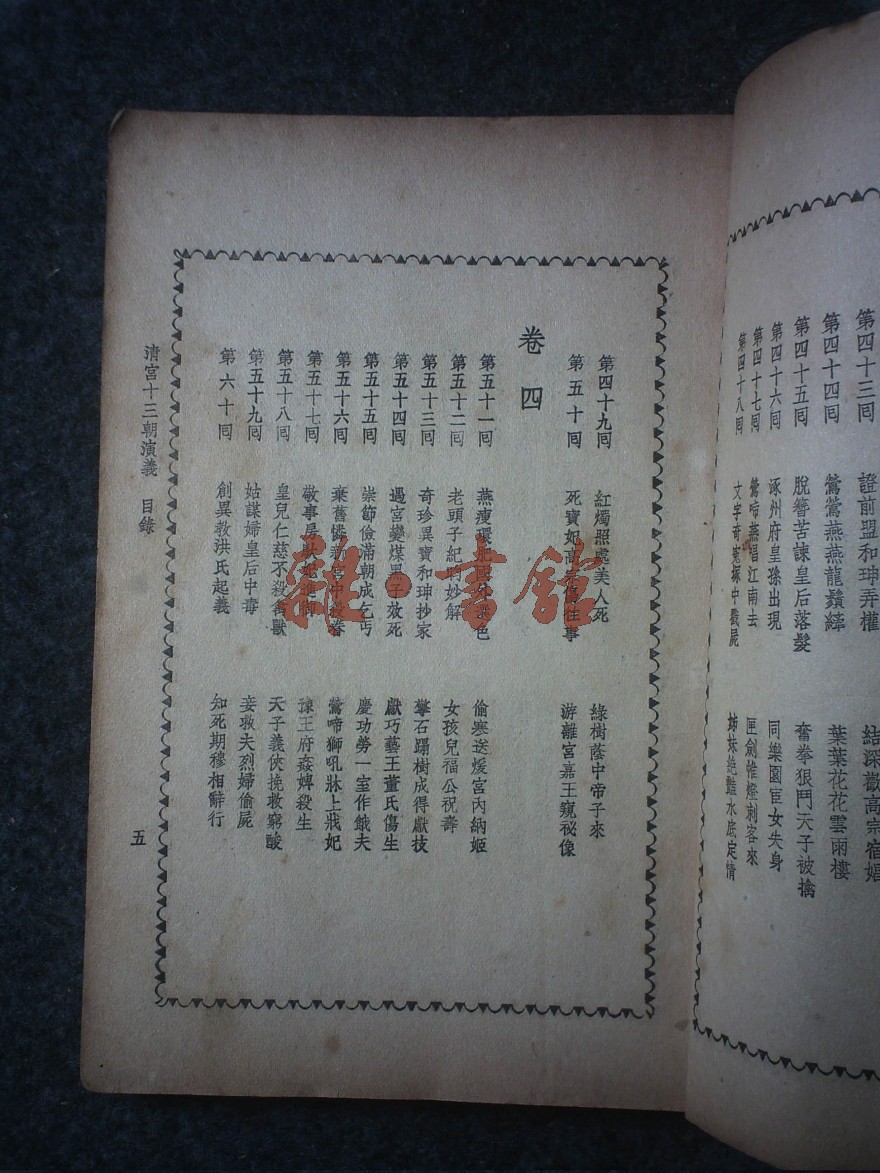 第四十三囘 證前盟和珅弄權 結深歡高宗宿娼
第四十四囘 鶯鶯燕燕龍鬚縴 葉葉花花雲雨樓
第四十五囘 脫簪苦諫皇后落髮 奮拳狠鬥天子被擒
第四十六囘 涿州府皇孫出現 同樂園宦女失身
第四十七囘 鶯啼燕唱江南去 匣劍帷燈刺客來
第四十八囘 文字奇冤塚中戮屍 姊妹絕豔水底定情
第四十九囘 紅燭照處美人死 綠樹蔭中帝子來
第五十囘 死寶妃高宗往事 游離宮嘉王窺祕像
卷四
第五十一囘 燕瘦環肥國外選色 偷寒送煖宮內納姬
第五十二囘 老頭子紀昀妙解 女孩兒福公祝壽
第五十三囘 奇珍異寶和珅抄家 攀石蹋樹成得獻技
第五十四囘 遇宮變煤黑子效死 獻巧藝王董氏傷生
第五十五囘 崇節儉滿朝成乞丐 慶功勞一室作餓夫
第五十六囘 棄舊憐新宮中殺眷 鶯啼獅吼牀上戕妃
第五十七囘 敬事房 豫王府姦婢殺生
第五十八囘 皇兒仁慈不殺禽獸 天子義俠挽救窮酸
第五十九囘 姑謀婦皇后中毒 妾救夫烈婦偷屍
第六十囘 創異教洪氏起義 知死期穆相辭行
清宮十三朝演義 目錄
五
雜·書館